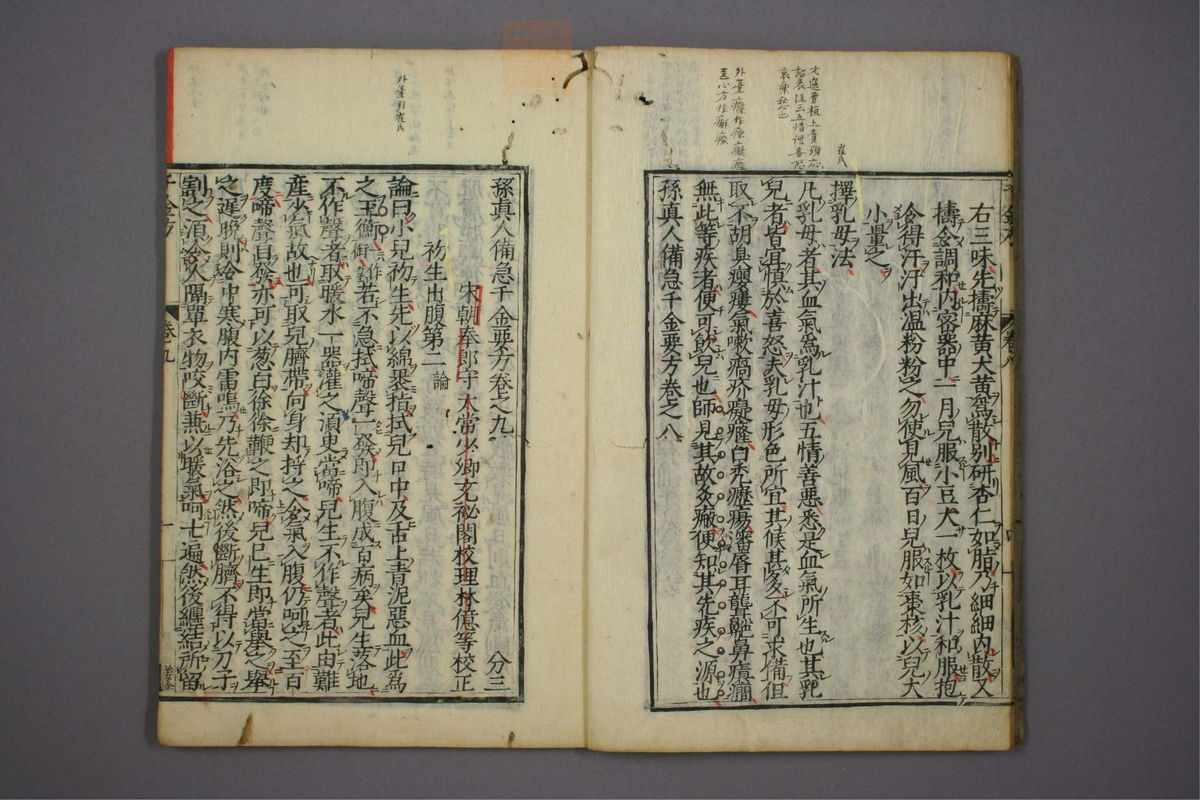 右三味先擣麻黄大黄為散別研杏仁如脂乃細細内散又
擣令調和内密器中一月兒服小豆大一枚以乳汁和服抱
令得汗汗出温粉粉之勿使見風百日兒服如棗核以兒大
小量之
擇乳母法
凡乳母者其血氣為乳汁也五情善惡悉是血氣所生也其乳
兒者皆宜慎於喜怒夫乳母形色所宜其候甚多不可求備但
取不胡臭癭瘻氣嗽瘑疥癡癃白禿癧瘍瀋脣耳聾齆鼻癲癇
無此等疾者便可飲兒也師見其故灸瘢便知其先疾之源也
孫真人備急千金要方卷之八
崔氏
外臺癡作
醫心方作癬瘙
千金方
卷八
孫真人備急千金要方卷之九 分三
宋朝奉郎守太常少卿充秘閣校理林億等校正
初生出腹第二 論
論曰小兒初生先以綿裹指拭兒口中及舌上青泥惡血此為
之玉衡 一作銜 若不急拭啼聲一發即入腹成百病矣兒生落地
不作聲者取暖水一器灌之須臾當啼兒生不作聲者此由難
産少氣故也可取兒臍帶向身却捋之令氣入腹仍呵之至百
度啼聲自發亦可以葱白徐徐鞭之即啼兒已生即當舉之舉
之遲晚則令中寒腹内雷鳴乃先浴之然後斷臍不得以刀子
割之須令人隔單衣物咬斷兼以暖氣呵七遍然後纏結所留
外臺引崔氏
千金方
卷九